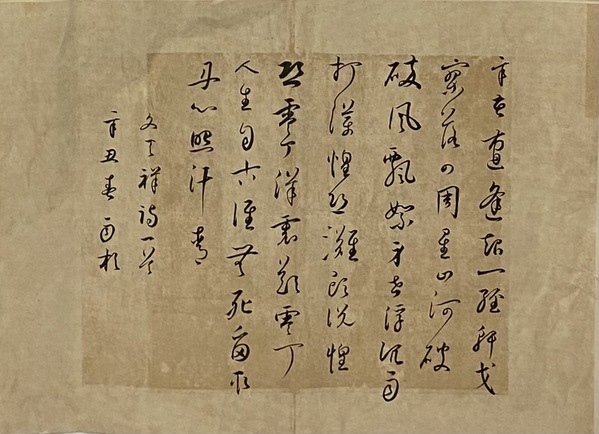 辛苦遭逢起一經幹戈
寥落四周星山河破
碎風飄絮身世浮沉雨
打萍惶恐灘頭說惶
恐零丁洋裏歎零丁
人生自古誰無死留取
丹心照汗青
文天祥詩一首
辛丑春雨